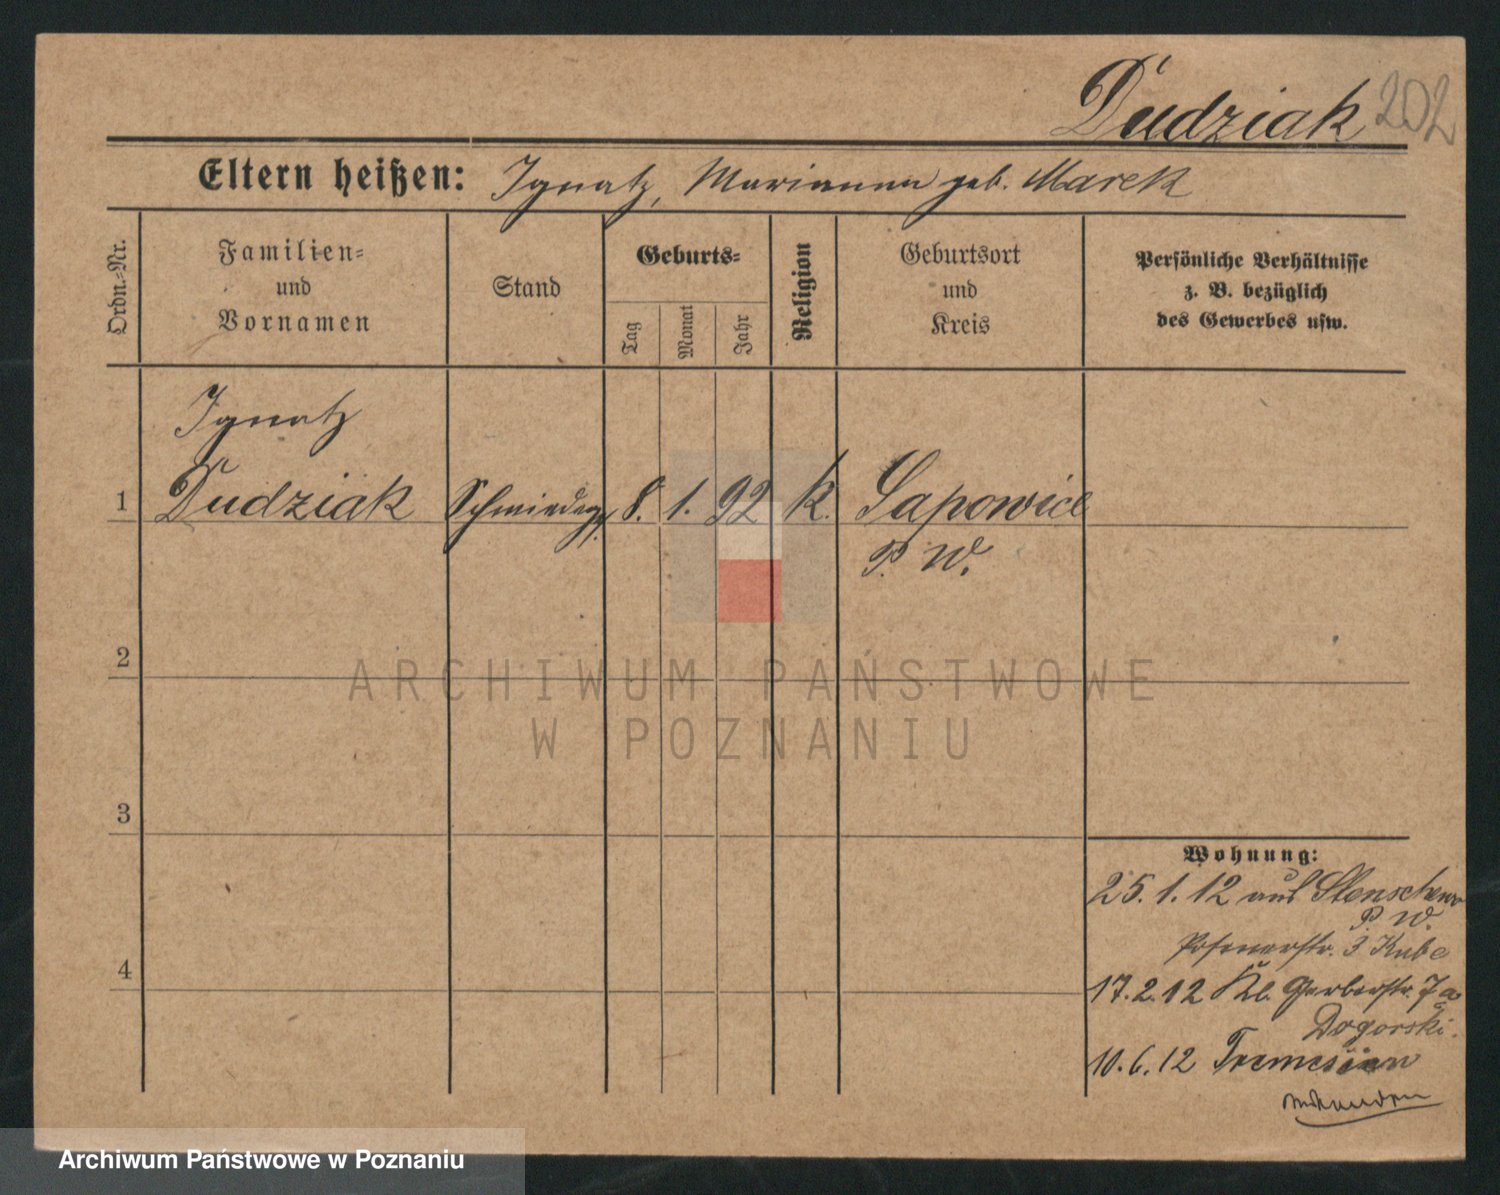 Dudziak 202
Eltern heißen: Ignatz, Marianna geb. Marek
Ordn.-Nr.
Familien-
und
Vornamen
Stand
Geburts-
Tag
Monat
Jahr
Religion
Geburtsort
und
Kreis
Persönliche Verhältnisse
z. B. bezüglich
des Gewerbes usw.
Ignatz
1 Dudziak Schmiedeg. 8. 1. 92 k. Sapowice
P. W.
2
3
4
Wohnung:
25.1.12 aus Stenschewo
P. W.
Posenerstr. 3 Kube
17.2.12 Kl. Gerberstr. 7a
Dogorski.
10.6.12 Tremessen
ARCHIWUM PAŃSTWOWE
W POZNANIU
Archiwum Państwowe w Poznaniu